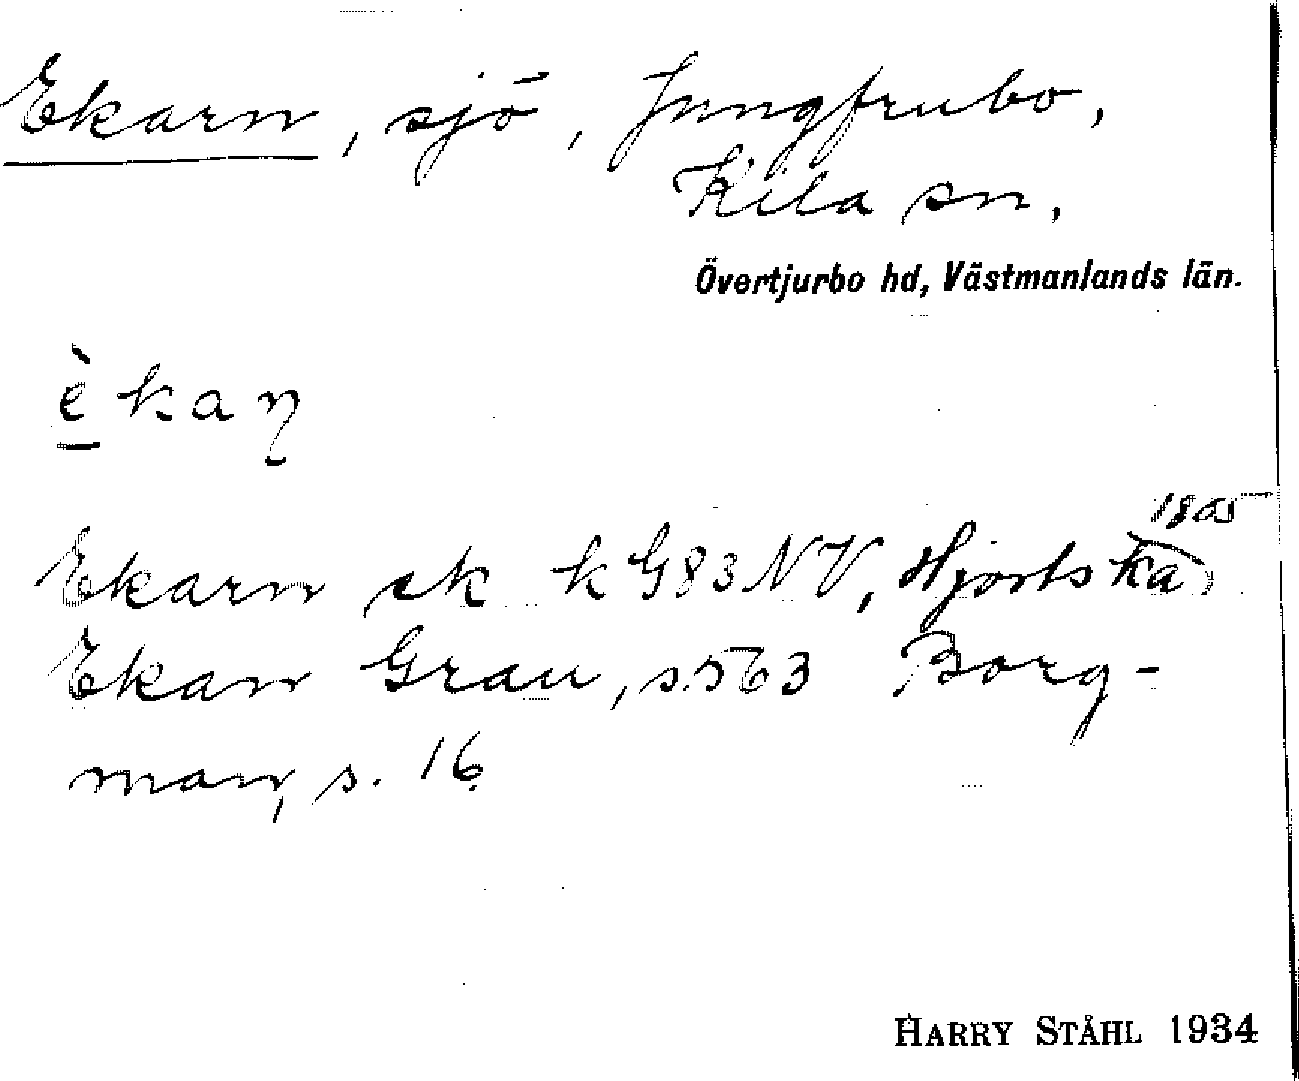 Ekarn, sjö, Jungfrubo,
Kila sn,
Övertjurbo hd, Västmanlands län.
èkaṇ
1805
Ekarn sk k G83 NV, Hjorts ka
Ekan Grau, s. 563 Borg-
man, s. 16.
HARRY STÅHL 1934